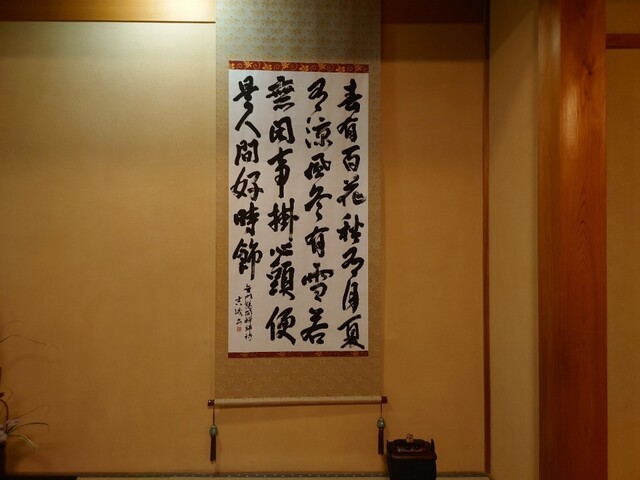 春有百花秋有月夏
有涼風冬有雪若
無閑事掛心頭便
是人間好時節
無門慧開禅師詩